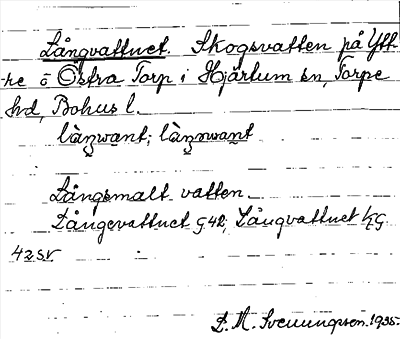 Långvattnet. Skogsvatten på Ytt-
re o Östra Torp i Hjärtum sn, Torpe
hd, Bohus l.
Långsmalt vatten.
Långevattnet G 42; Långvattnet
42 SV
S. M. Svenungsson. 1935.